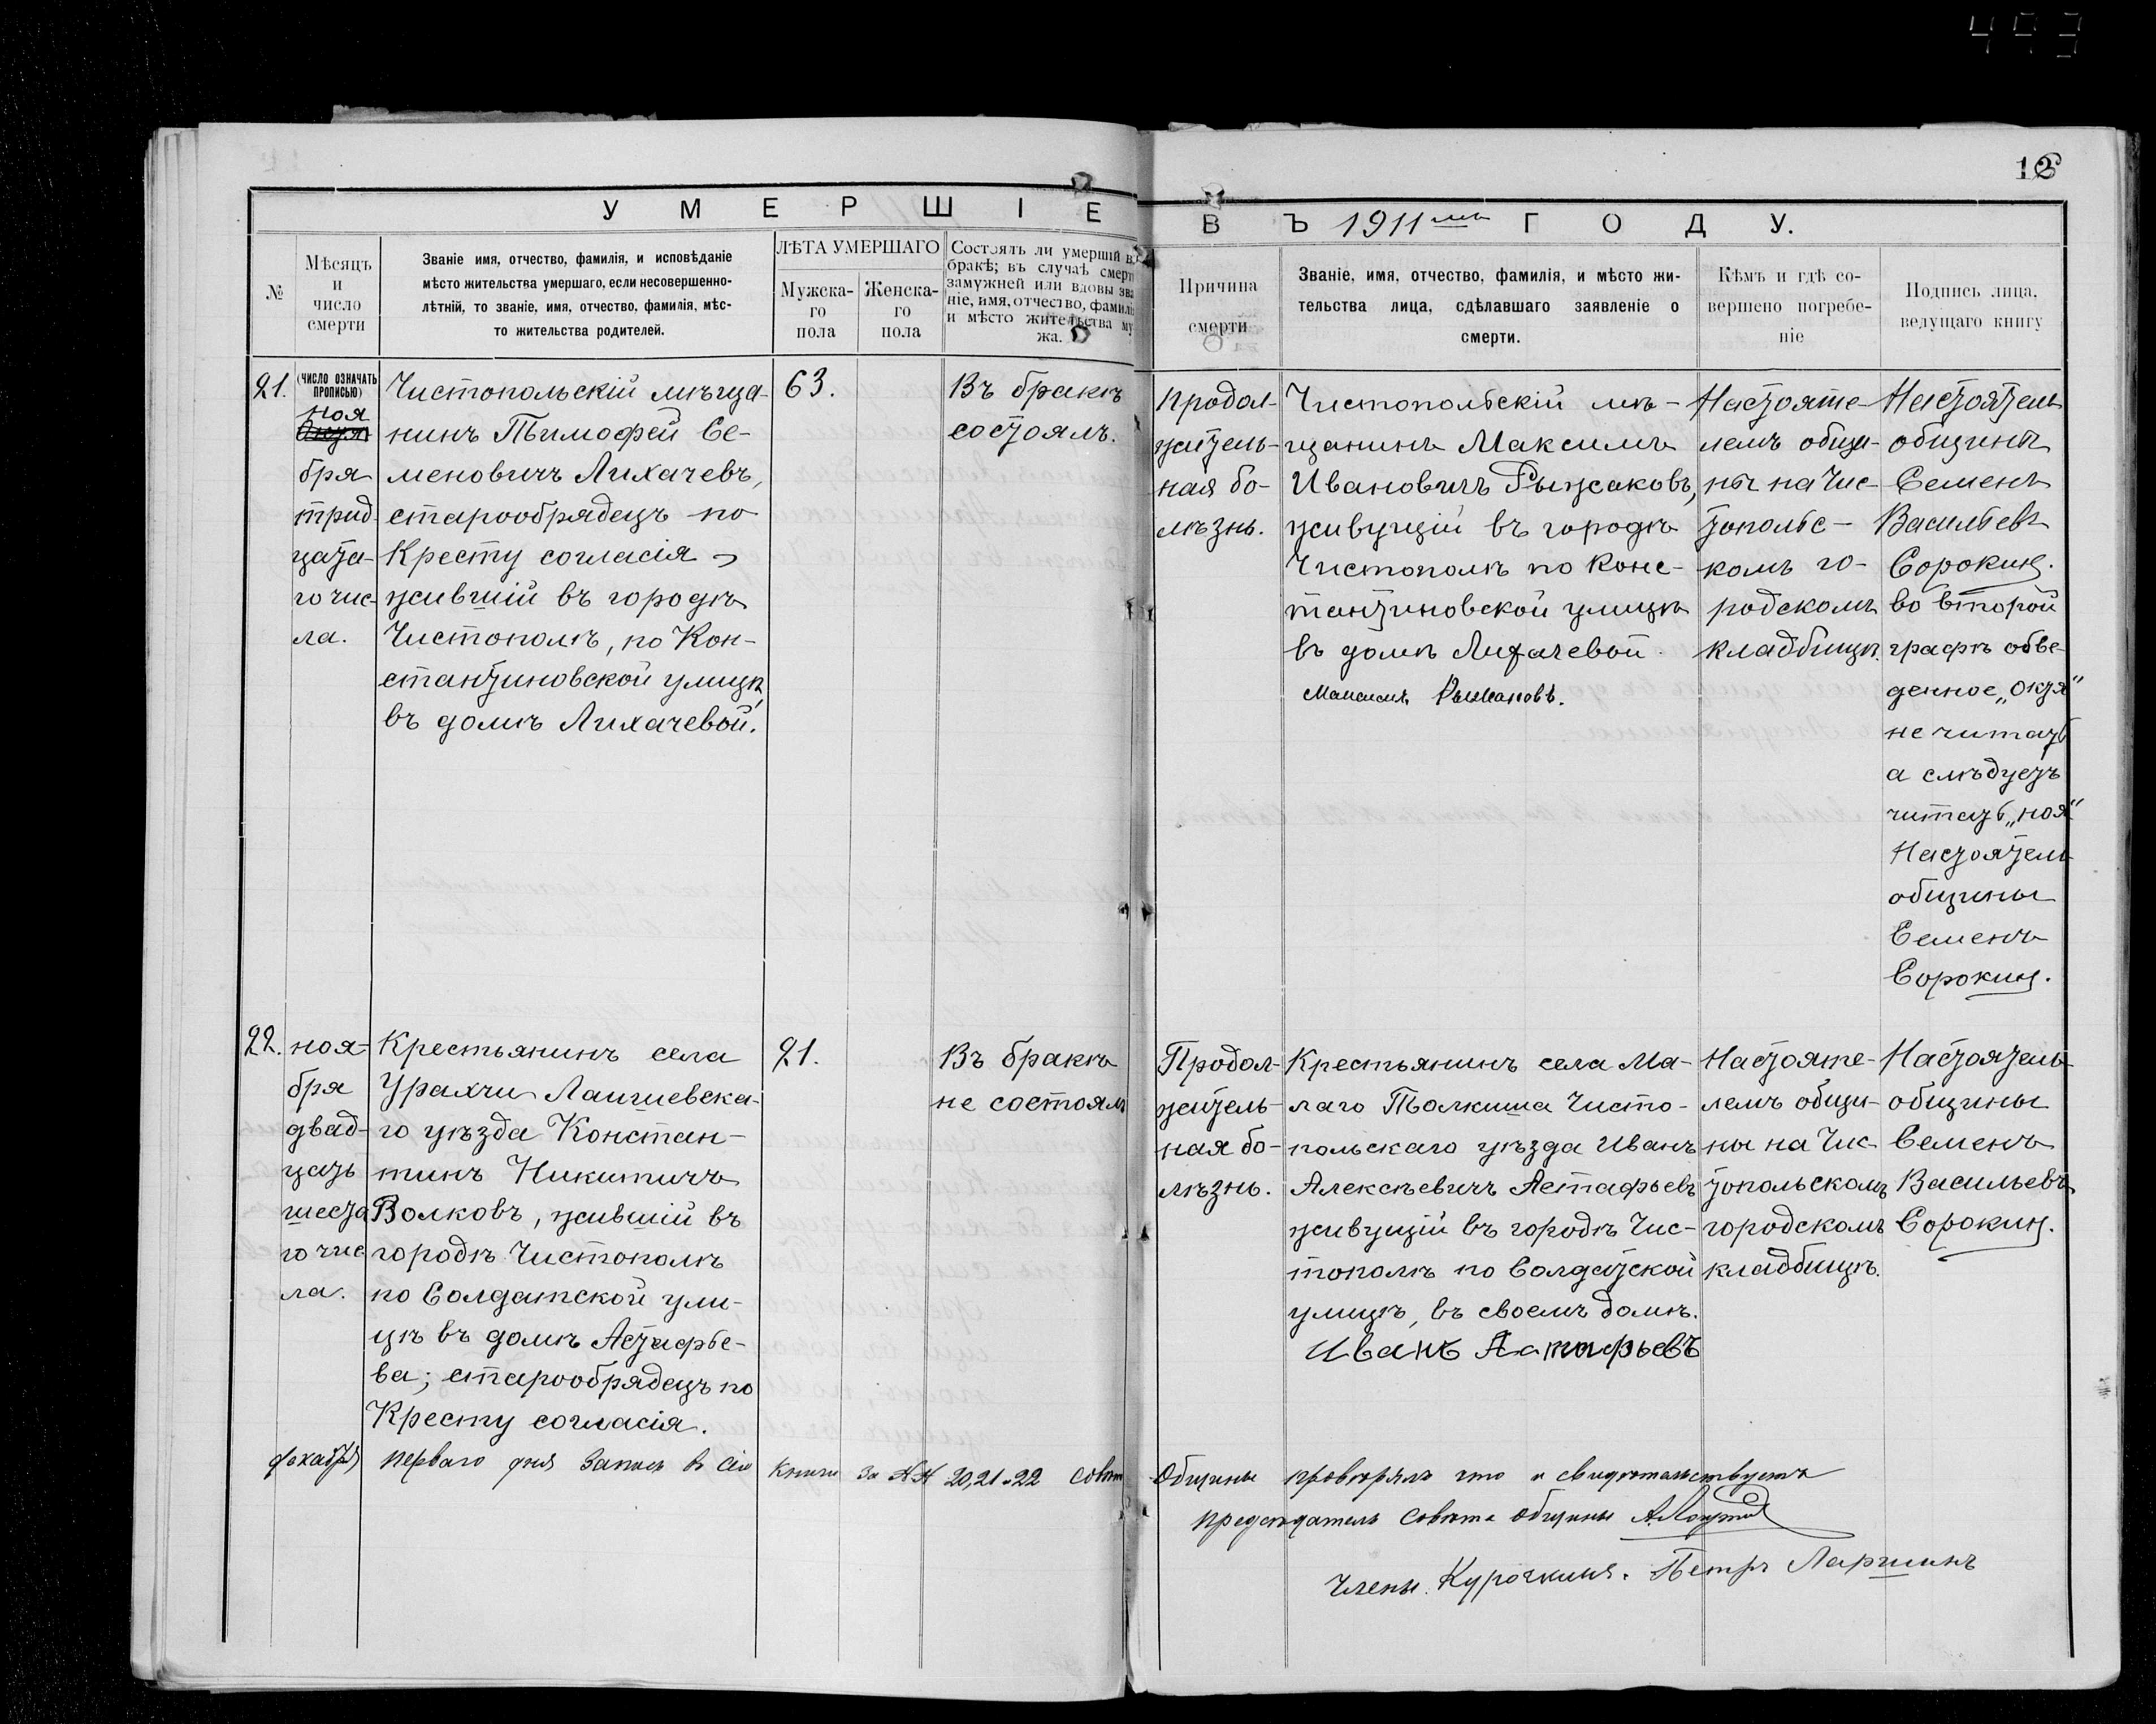 УМЕРШІЕ ВЪ 1911мъ ГОДУ.
№
Мѣсяцъ
и
число
смерти
Званіе имя, отчество, фамилія, и исповѣданіе
мѣсто жительства умершаго, если несовершенно-
лѣтній, то званіе, имя, отчество, фамилія, мѣс-
то жительства родителей.
ЛѢТА УМЕРШАГО
Мужска-
го
пола
Женска-
го
пола
Состоялъ ли умершій въ
бракѣ; въ случаѣ смерти
замужней или вдовы зва
ніе, имя, отчество, фамилія
и мѣсто жительства му
жа.
Причина
смерти
Званіе, имя, отчество, фамилія, и мѣсто жи-
тельства лица, сдѣлавшаго заявленіе о
смерти.
Кѣмъ и гдѣ со-
вершено погребе-
ніе
Подпись лица,
ведущаго книгу
21.
(ЧИСЛО ОЗНАЧАТЬ
ПРОПИСЬЮ)
ноя
Октя
бря
трид-
цата-
го чис-
ла.
Чистопольскій мѣща-
нинъ Тимофей Се-
меновичъ Лихачевъ,
старообрядецъ по
Кресту согласія,
жившій въ городѣ
Чистополѣ, по Кон-
стантиновской улицѣ,
въ домѣ Лихачевой.
63.
Въ бракѣ
состоялъ.
Продол-
житель-
ная бо-
лѣзнь.
Чистопольскій мѣ-
щанинъ Максимъ
Ивановичъ Рыжаковъ,
живущій въ городѣ
Чистополѣ по Конс-
тантиновской улицѣ
въ домѣ Лихачевой.
Максимъ Рыжаковъ.
Настояте-
лемъ общи-
ны на Чис-
топольс-
комъ го-
родскомъ
кладбищѣ.
Настоятель
общины
Семенъ
Васильевъ
Сорокинъ.
во второй
графѣ обве-
денное „Октя“
не читать
а слѣдуетъ
читать „ноя“
Настоятель
общины
Семенъ
Сорокинъ.
22.
ноя-
бря
двад-
цать
шеста
го чис
ла.
Крестьянинъ села
Урахчи Лаишевска-
го уѣзда Констан-
тинъ Никитичъ
Волковъ, жившій въ
городѣ Чистополѣ
по Солдатской ули-
цѣ въ домѣ Астафье-
ва; старообрядецъ по
Кресту согласія.
21.
Въ бракѣ
не состоялъ
Продол-
житель-
ная бо-
лѣзнь.
Крестьянинъ села Ма-
лаго Толкиша Чисто-
польскаго уѣзда Иванъ
Алексѣевичъ Астафьевъ
живущій въ городѣ Чис-
тополѣ по Солдатской
улицѣ, въ своемъ домѣ.
Иванъ Астафьевъ
Настояте-
лемъ общи-
ны на Чис-
топольскомъ
городскомъ
кладбищѣ.
Настоятель
общины
Семенъ
Васильевъ
Сорокинъ.
декабря перваго дня запись въ сію книгу за №№ 20, 21 и 22 совѣтъ Общины провѣрялъ что и свидѣтельствуетъ
Предсѣдатель Совѣта Общины
Члены. Курочкинъ. Петръ Ларшинъ